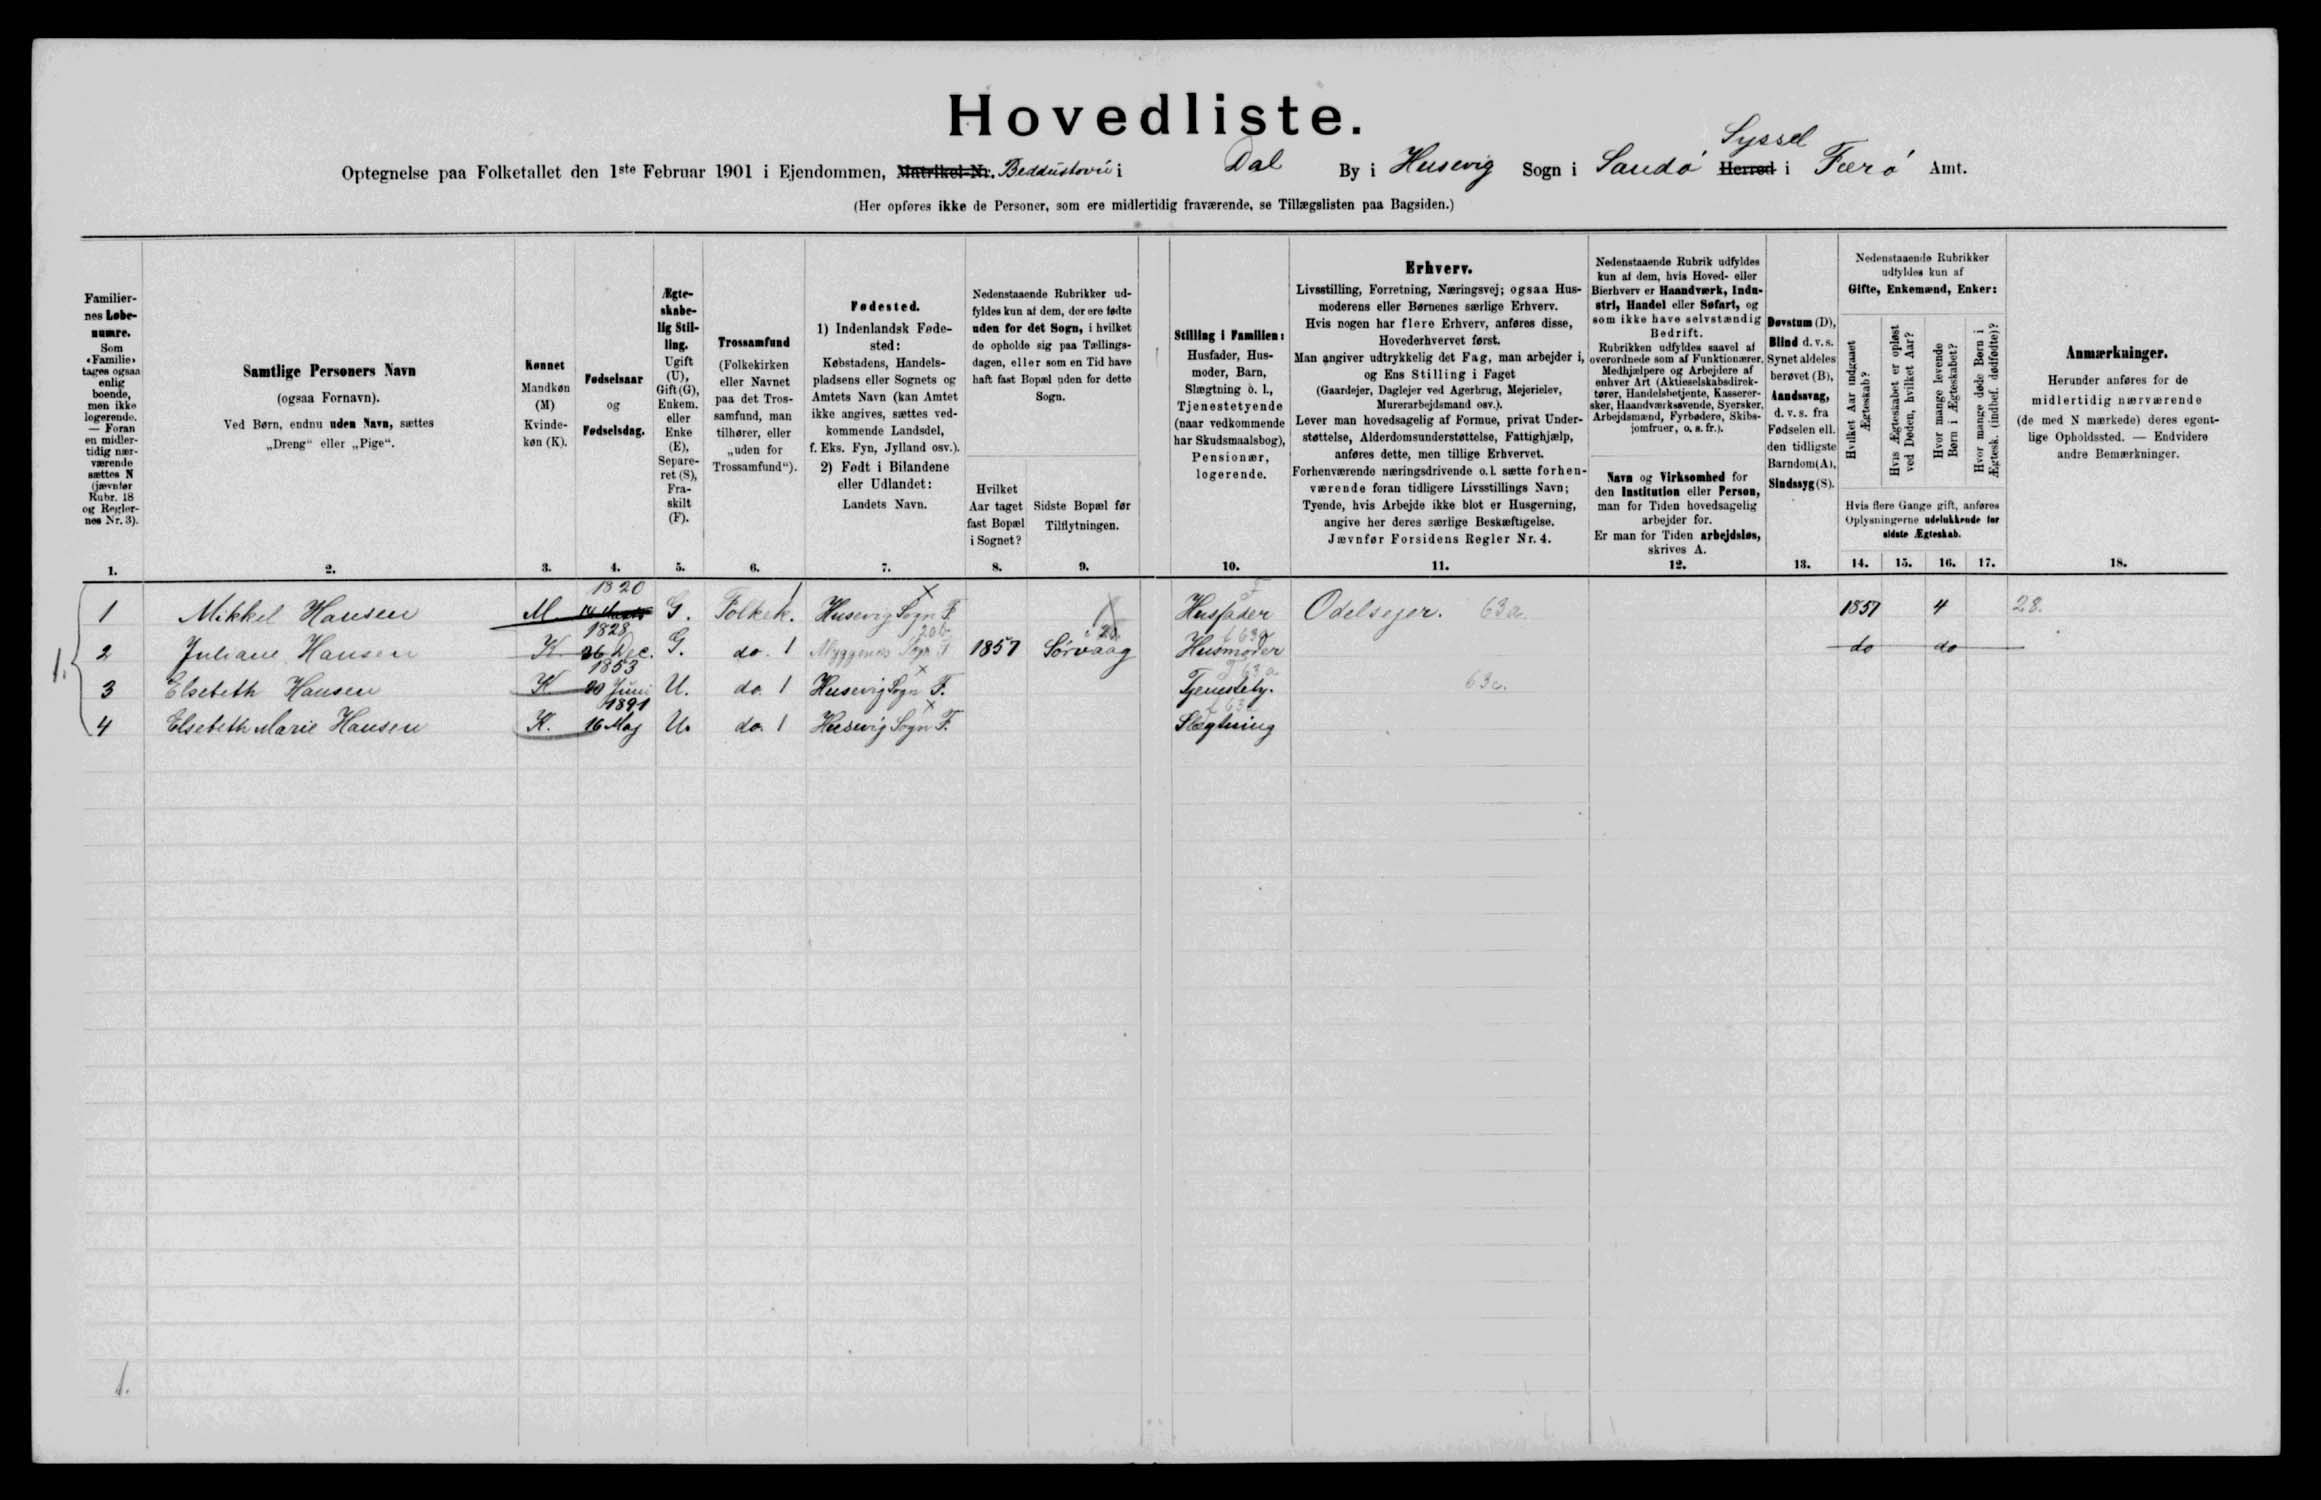 Hovedliste.
Syssel
Optegnelse paa Folketallet den 1ste Februar 1901 i Ejendommen, Matrikel-Nr. Beddustovu i Dal By i Husevig Sogn i Sandø Herred i Færø Amt.
(Her opføres ikke de Personer, som ere midlertidig fraværende, se Tillægslisten paa Bagsiden.)
Familier-
nes Løbe-
numre.
Som
«Familie»
tages ogsaa
enlig
boende,
men ikke
logerende.
— Foran
en midler-
tidig nær-
værende
sættes N
(jævnfør
Rubr. 18
og Regler-
nes Nr. 3).
Samtlige Personers Navn
(ogsaa Fornavn).
Ved Børn, endnu uden Navn, sættes
„Dreng“ eller „Pige“.
Kønnet
Mandkøn
(M)
Kvinde-
køn (K).
Fødselsaar
og
Fødselsdag.
Ægte-
skabe-
lig Stil-
ling.
Ugift
(U),
Gift (G),
Enkem.
eller
Enke
(E),
Separe-
ret (S),
Fra-
skilt
(F).
Trossamfund
(Folkekirken
eller Navnet
paa det Tros-
samfund, man
tilhører, eller
„uden for
Trossamfund“).
Fødested.
1) Indenlandsk Føde-
sted:
Købstadens, Handels-
pladsens eller Sognets og
Amtets Navn (kan Amtet
ikke angives, sættes ved-
kommende Landsdel,
f. Eks. Fyn, Jylland osv.).
2) Født i Bilandene
eller Udlandet:
Landets Navn.
Nedenstaaende Rubrikker ud-
fyldes kun af dem, der ere fødte
uden for det Sogn, i hvilket
de opholde sig paa Tællings-
dagen, eller som en Tid have
haft fast Bopæl uden for dette
Sogn.
Hvilket
Aar taget
fast Bopæl
i Sognet?
Sidste Bopæl før
Tilflytningen.
Stilling i Familien:
Husfader, Hus-
moder, Barn,
Slægtning o. l.,
Tjenestetyende
(naar vedkommende
har Skudsmaalsbog),
Pensionær,
logerende.
Erhverv.
Livsstilling, Forretning, Næringsvej; ogsaa Hus-
moderens eller Børnenes særlige Erhverv.
Hvis nogen har flere Erhverv, anføres disse,
Hovederhvervet først.
Man angiver udtrykkelig det Fag, man arbejder i,
og Ens Stilling i Faget
(Gaardejer, Daglejer ved Agerbrug, Mejerielev,
Murerarbejdsmand osv.).
Lever man hovedsagelig af Formue, privat Under-
støttelse, Alderdomsunderstøttelse, Fattighjælp,
anføres dette, men tillige Erhvervet.
Forhenværende næringsdrivende o.l. sætte forhen-
værende foran tidligere Livsstillings Navn;
Tyende, hvis Arbejde ikke blot er Husgerning,
angive her deres særlige Beskæftigelse.
Jævnfør Forsidens Regler Nr. 4.
Nedenstaaende Rubrik udfyldes
kun af dem, hvis Hoved- eller
Bierhverv er Haandværk, Indu-
stri, Handel eller Søfart, og
som ikke have selvstændig
Bedrift.
Rubrikken udfyldes saavel af
overordnede som af Funktionærer,
Medhjælpere og Arbejdere af
enhver Art (Aktieselskabsdirek-
tører, Handelsbetjente, Kasserer-
sker, Haandværkssvende, Syersker,
Arbejdsmænd, Fyrbødere, Skibs-
jomfruer, o. s. fr.).
Navn og Virksomhed for
den Institution eller Person,
man for Tiden hovedsagelig
arbejder for.
Er man for Tiden arbejdsløs,
skrives A.
Døvstum (D),
Blind d. v. s.
Synet aldeles
berøvet (B),
Aandssvag,
d. v. s. fra
Fødselen ell.
den tidligste
Barndom (A),
Sindssyg (S).
Nedenstaaende Rubrikker
udfyldes kun af
Gifte, Enkemænd, Enker:
Hvilket Aar indgaaet
Ægteskab?
Hvis Ægteskabet er opløst
ved Døden, hvilket Aar?
Hvor mange levende
Børn i Ægteskabet?
Hvor mange døde Børn i
Ægtesk. (indbef. dødfødte)?
Hvis flere Gange gift, anføres
Oplysningerne udelukkende for
sidste Ægteskab.
Anmærkninger.
Herunder anføres for de
midlertidig nærværende
(de med N mærkede) deres egent-
lige Opholdssted. — Endvidere
andre Bemærkninger.
1. 2. 3. 4. 5. 6. 7. 8. 9. 10. 11. 12. 13. 14. 15. 16. 17. 18.
1820
1 Mikkel Hansen M G. Folkek. Husevig Sogn F. Husfader Odelsejer. 63a. 1857 4 28.
1828
2 Juliane Hansen K 26 Dec. G. do. 1 Myggenæs Sogn F 1857 Sørvaag Husmoder do do
1853
3 Elsebeth Hansen K 20 Juni U. do. 1 Husevig Sogn F. Tjenestety. 63a.
1891
4 Elsebeth Marie Hansen K. 16 Maj U. do. 1 Husevig Sogn F. Slægtning
1.
1.